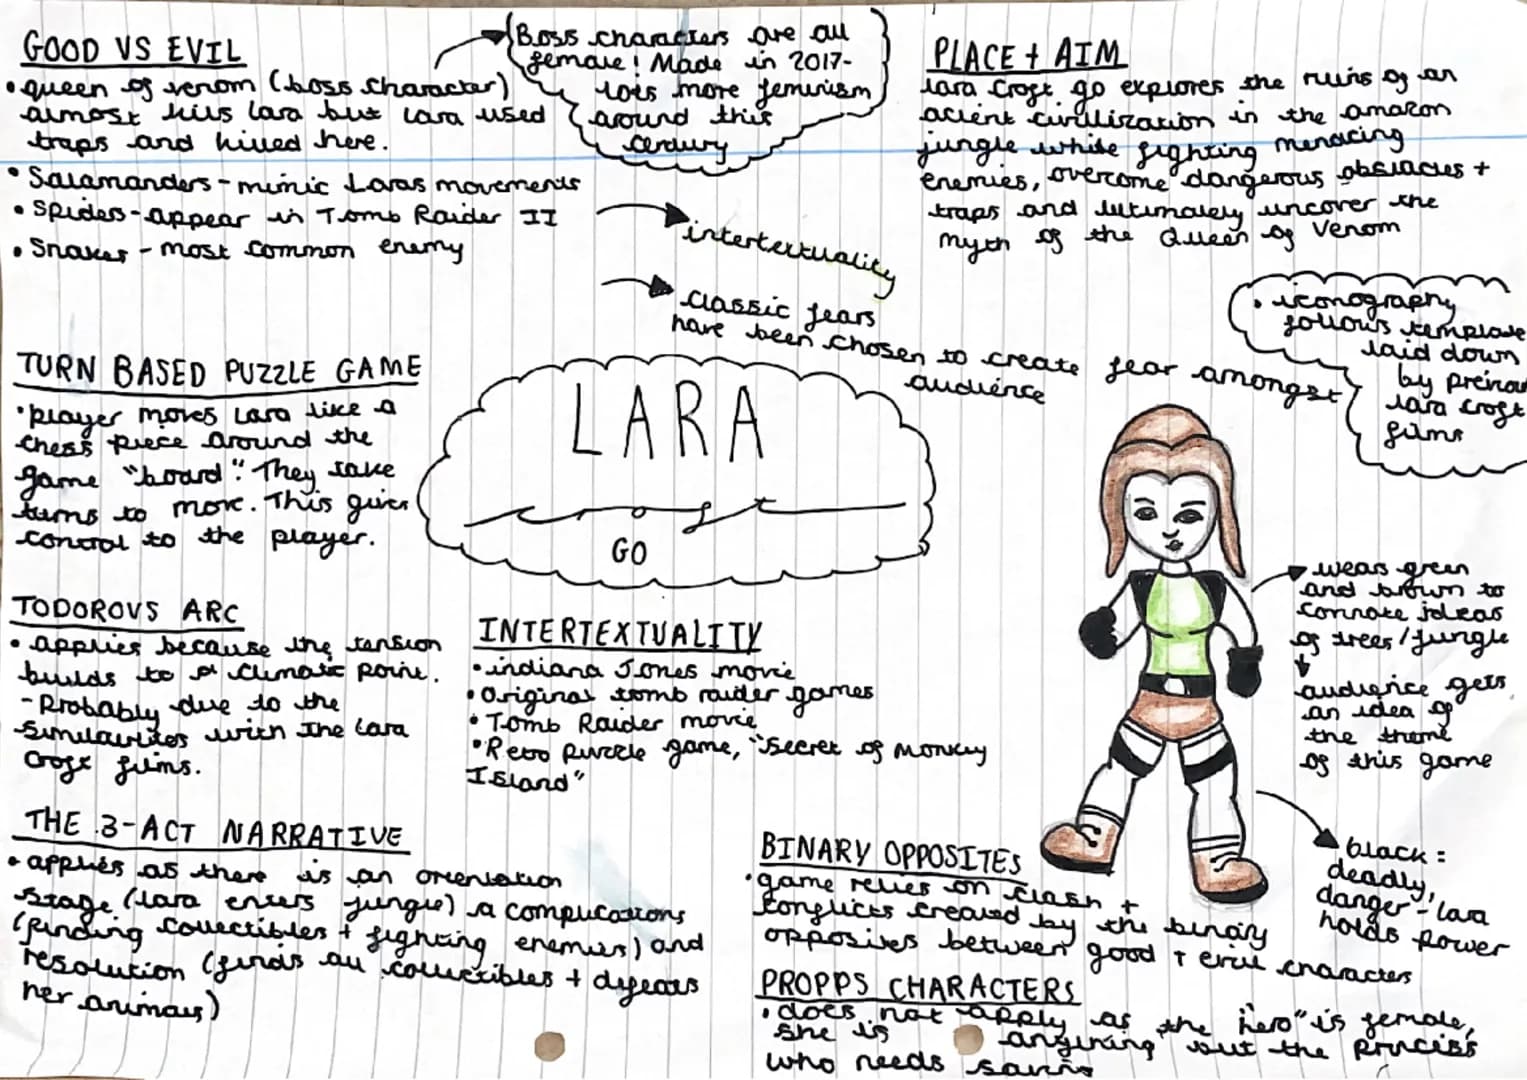 GOOD VS EVIL
• queen of venom (boss character)
almost kills Lara but Lara used
traps and killed here.
• Salamanders - mimic Laras movements
• Spiders - appear in Tomb Raider II
• Snakes - most common enemy
Boss characters are all
female! Made in 2017-
lots more feminism
around this
century
intertextuality
classic fears
have been chosen to create fear amongst
audience
PLACE + AIM
Lara Croft go explores the ruins of an
acient civilization in the amazon
jungle while fighting menacing
enemies, overcome dangerous obstacles +
traps and ultimately uncover the
myth of the Queen of Venom
• iconography
follows template
laid down
by previou
lara croft
films
TURN BASED PUZZLE GAME
• player moves Lara like a
chess piece around the
game "board". They take
turns to move. This gives
control to the player.
LARA
croft
GO
TODOROVS ARC
• applies because the tension
builds to a climatic point.
- Probably due to the
similarities with the Lara
Croft films.
INTERTEXTUALITY
• indiana Jones movie
• Original tomb raider games
• Tomb Raider movie
• Retro puzzle game, "Secret of Monkey
Island"
wears green
and brown to
connote ideas
of trees/jungle
audience gets
an idea of
the theme
of this game
black =
deadly,
danger - lara
holds power
THE 3-ACT NARRATIVE
• applies as there is an orientation
stage (lara enters jungle) a complications
(finding collectibles + fighting enemies) and
resolution (finds all collectibles + defeats
her animals)
BINARY OPPOSITES
• game relies on clash +
conflicts created by the binary
opposites between good + evil characters
PROPPS CHARACTERS
• does not apply as the "hero" is female,
she is anything but the princess
who needs saving